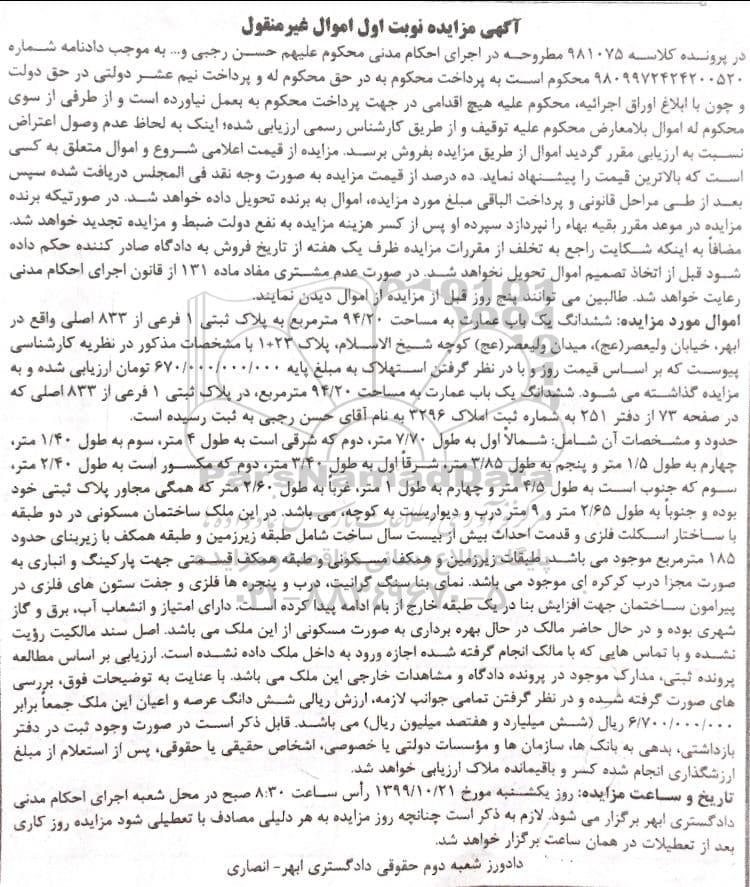 آگهی مزایده نوبت اول اموال غیرمنقول
در پرونده کلاسه ۹۸۱۰۷۵ مطروحه در اجرای احکام مدنی محکوم علیهم حسن رجبی و... به موجب دادنامه شماره
۹۸۰۹۹۷۲۴۲۴۲۰۰۵۲۰ محکوم است به پرداخت محکوم به در حق محکوم له و پرداخت نیم عشر دولتی در حق دولت
و چون با ابلاغ اوراق اجرائیه، محکوم علیه هیچ اقدامی در جهت پرداخت محکوم به بعمل نیاورده است و از طرفی از سوی
محکوم له اموال بلامعارض محکوم علیه توقیف و از طریق کارشناس رسمی ارزیابی شده؛ اینک به لحاظ عدم وصول اعتراض
نسبت به ارزیابی مقرر گردید اموال از طریق مزایده بفروش برسد. مزایده از قیمت اعلامی شروع و اموال متعلق به کسی
است که بالاترین قیمت را پیشنهاد نماید. ده درصد از قیمت مزایده به صورت وجه نقد فی المجلس دریافت شده سپس
بعد از طی مراحل قانونی و پرداخت الباقی مبلغ مورد مزایده، اموال به برنده تحویل داده خواهد شد. در صورتیکه برنده
مزایده در موعد مقرر بقیه بهاء را نپردازد سپرده او پس از کسر هزینه مزایده به نفع دولت ضبط و مزایده تجدید خواهد شد.
مضافاً به اینکه شکایت راجع به تخلف از مقررات مزایده ظرف یک هفته از تاریخ فروش به دادگاه صادر کننده حکم داده
شود قبل از اتخاذ تصمیم اموال تحویل نخواهد شد. در صورت عدم مشتری مفاد ماده ۱۳۱ از قانون اجرای احکام مدنی
رعایت خواهد شد. طالبین می توانند پنج روز قبل از مزایده از اموال دیدن نمایند.
اموال مورد مزایده: ششدانگ یک باب عمارت به مساحت ۹۴/۲۰ مترمربع به پلاک ثبتی ۱ فرعی از ۸۳۳ اصلی واقع در
ابهر، خیابان ولیعصر(عج)، میدان ولیعصر(عج) کوچه شیخ الاسلام، پلاک ۱۰۲۳ با مشخصات مذکور در نظریه کارشناسی
پیوست که بر اساس قیمت روز و با در نظر گرفتن استهلاک به مبلغ پایه ۶۷۰/۰۰۰/۰۰۰/۰۰۰ تومان ارزیابی شده و به
مزایده گذاشته می شود. ششدانگ یک باب عمارت به مساحت ۹۴/۲۰ مترمربع، در پلاک ثبتی ۱ فرعی از ۸۳۳ اصلی که
در صفحه ۷۳ از دفتر ۲۵۱ به شماره ثبت املاک ۳۲۹۶ به نام آقای حسن رجبی به ثبت رسیده است.
حدود و مشخصات آن شامل: شمالاً اول به طول ۷/۷۰ متر، دوم که شرقی است به طول ۴ متر، سوم به طول ۱/۴۰ متر،
چهارم به طول ۱/۵ متر و پنجم به طول ۳/۸۵ متر، شرقاً اول به طول ۳/۴۰ متر، دوم که مکسور است به طول ۲/۴۰ متر،
سوم که جنوب است به طول ۴/۵ متر و چهارم به طول ۱ متر، غرباً به طول ۲/۶۰ متر که همگی مجاور پلاک ثبتی خود
بوده و جنوباً به طول ۲/۶۵ متر و ۹ متر درب و دیواریست به کوچه، می باشد. در این ملک ساختمان مسکونی در دو طبقه
با ساختار اسکلت فلزی و قدمت احداث بیش از بیست سال ساخت شامل طبقه زیرزمین و طبقه همکف با زیربنای حدود
۱۸۵ مترمربع موجود می باشد. طبقات زیرزمین و همکف مسکونی و طبقه همکف قسمتی جهت پارکینگ و انباری به
صورت مجزا درب کرکره ای موجود می باشد. نمای بنا سنگ گرانیت، درب و پنجره ها فلزی و جفت ستون های فلزی در
پیرامون ساختمان جهت افزایش بنا در یک طبقه خارج از بام ادامه پیدا کرده است. دارای امتیاز و انشعاب آب، برق و گاز
شهری بوده و در حال حاضر مالک در حال بهره برداری به صورت مسکونی از این ملک می باشد. اصل سند مالکیت رؤیت
نشده و با تماس هایی که با مالک انجام گرفته شده اجازه ورود به داخل ملک داده نشده است. ارزیابی بر اساس مطالعه
پرونده ثبتی، مدارک موجود در پرونده دادگاه و مشاهدات خارجی این ملک می باشد. با عنایت به توضیحات فوق، بررسی
های صورت گرفته شده و در نظر گرفتن تمامی جوانب لازمه، ارزش ریالی شش دانگ عرصه و اعیان این ملک جمعاً برابر
۶/۷۰۰/۰۰۰/۰۰۰ ریال (شش میلیارد و هفتصد میلیون ریال) می باشد. قابل ذکر است در صورت وجود ثبت در دفتر
بازداشتی، بدهی به بانک ها، سازمان ها و مؤسسات دولتی یا خصوصی، اشخاص حقیقی یا حقوقی، پس از استعلام از مبلغ
ارزشگذاری انجام شده کسر و باقیمانده ملاک ارزیابی خواهد شد.
تاریخ و ساعت مزایده: روز یکشنبه مورخ ۱۳۹۹/۱۰/۲۱ رأس ساعت ۸:۳۰ صبح در محل شعبه اجرای احکام مدنی
دادگستری ابهر برگزار می شود. لازم به ذکر است چنانچه روز مزایده به هر دلیلی مصادف با تعطیلی شود مزایده روز کاری
بعد از تعطیلات در همان ساعت برگزار خواهد شد.
دادورز شعبه دوم حقوقی دادگستری ابهر- انصاری
ParsNamadData
۰۲۱-۸۸۳۴۹۶۷۰-۵